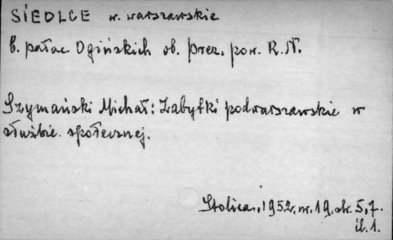 SIEDLCE w. warszawskie
b. pałac Ogińskich ob. prez. pow. R.N.
Szymański Michał: Zabytki podwarszawskie w
służbie społecznej.
Stolica, 1952, nr. 19, str. 5, 7.
il. 1.